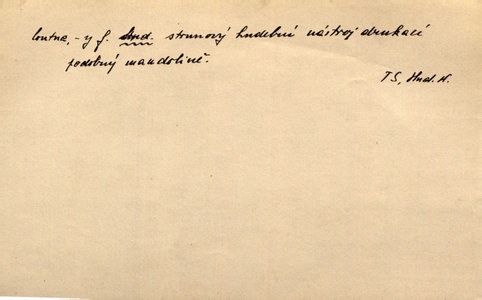 loutna, -y f. hud. strunový hudební nástroj drnkací
podobný mandolině.
TS, Hud. N.